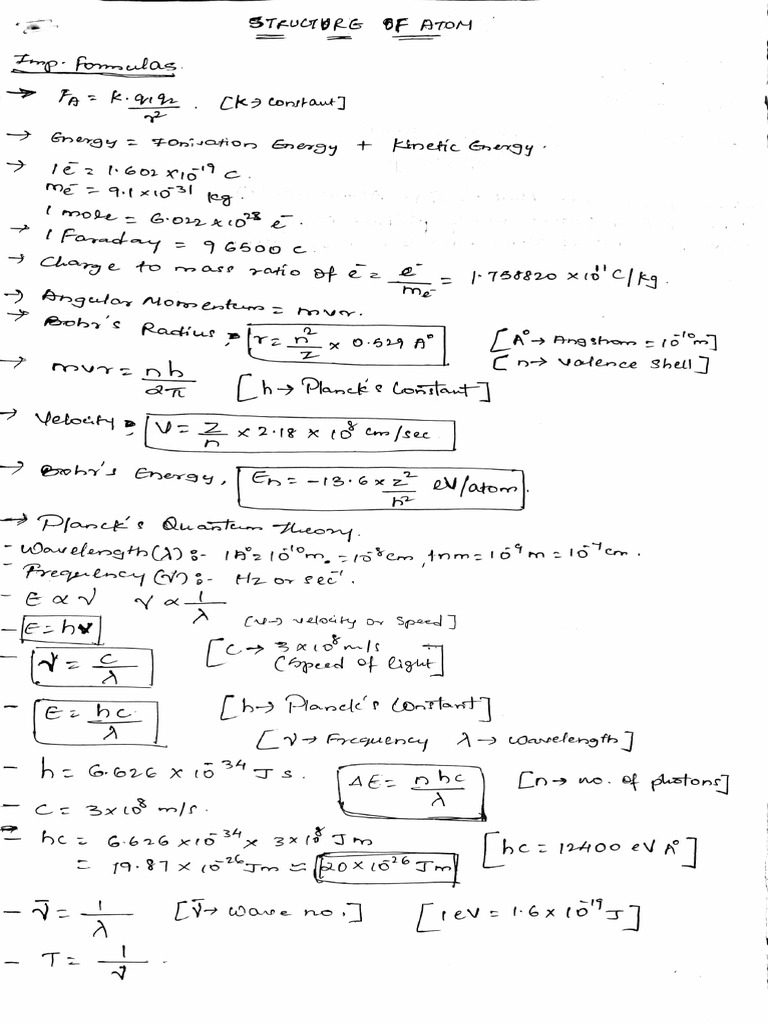 STRUCTURE OF ATOM
Imp. Formulas.
→ F_A = K.q₁q₂/r². [K→constant]
→ Energy = Ionisation Energy + Kinetic Energy.
→ 1e⁻ = 1.602 x10⁻¹⁹ C.
me⁻ = 9.1x10⁻³¹ kg.
1 mole = 6.022 x 10²⁸ e⁻.
→ 1 Faraday = 96500 C.
→ Charge to mass ratio of e⁻ = e⁻/me⁻ = 1.758820 x10¹¹ C/kg.
→ Angular Momentum = mvr.
→ Bohr's Radius, r = n²/Z x 0.529 A° [A°→Angstrom = 10⁻¹⁰m]
[n→ valence shell]
→ mvr = nh/2π [h→ Planck's Constant]
→ Velocity, V = Z/n x 2.18 x 10⁸ cm/sec
→ Bohr's Energy, En = -13.6 x z²/n² eV/atom.
→ Planck's Quantum Theory.
- Wavelength(λ):- 1A° = 10⁻¹⁰m. = 10⁻⁸cm, 1nm = 10⁻⁹m = 10⁻⁷cm.
- Frequency(ν):- Hz or sec⁻¹.
- E ∝ ν ν ∝ 1/λ
[v→ velocity or speed]
- E = hν
- ν = c/λ [C→ 3x10⁸m/s
(Speed of light]
- E = hc/λ [h→ Planck's Constant]
[ν→ Frequency λ→ wavelength]
- h = 6.626 x 10⁻³⁴ J s. ΔE = nhc/λ [n→ no. of photons]
- C = 3x10⁸ m/s.
- hc = 6.626 x10⁻³⁴ x 3x10⁸ Jm [hc = 12400 eV A°]
= 19.87 x 10⁻²⁶ Jm = 20x10⁻²⁶ Jm
- ν̄ = 1/λ [ν̄→ wave no.] [1eV = 1.6x10⁻¹⁹J]
- T = 1/ν.